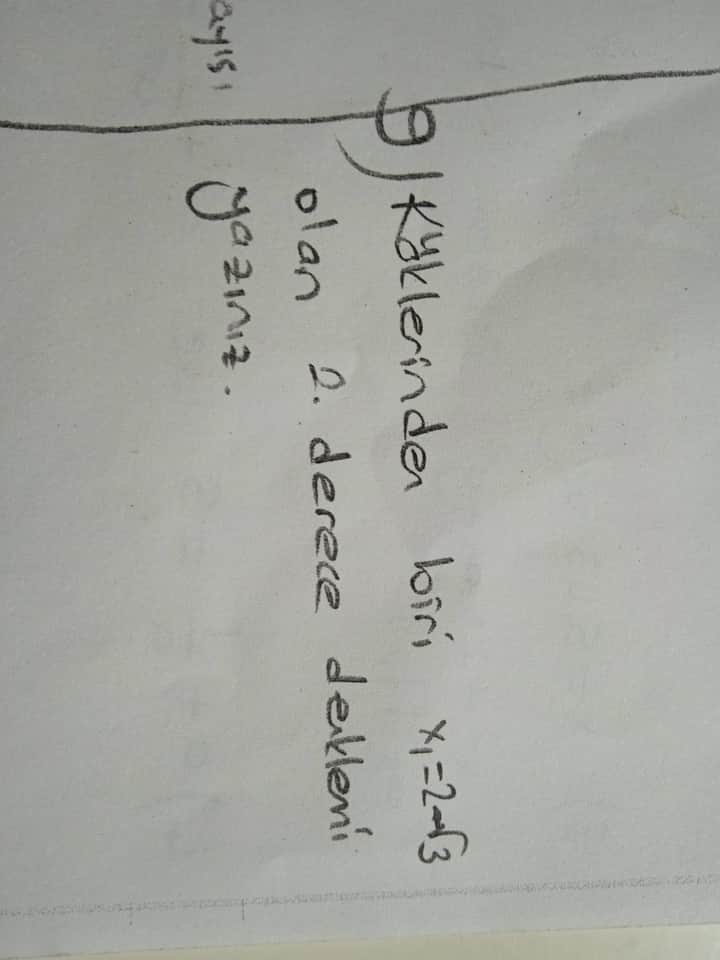 ayısı
9) Köklerinden biri x₁=2-√3
olan 2. derece denklemi
yazınız.